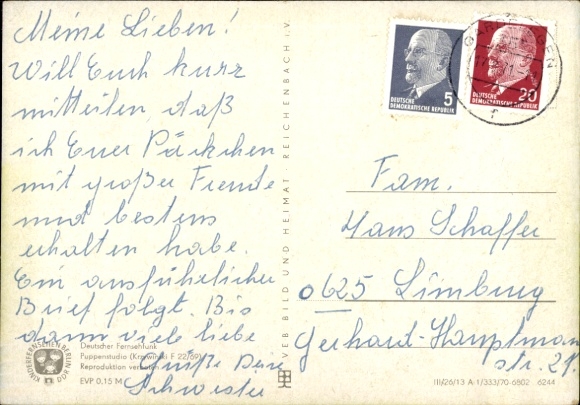 Meine Lieben!
Will Euch kurz
mitteilen, daß
ich Euer Päckchen
mit großer Freude
und bestens
erhalten habe.
Ein ausführlicher
Brief folgt. Bis
dann viele liebe
Grüße Deine
Schwester
KINDERFERNSEHEN BERLIN DDR
Deutscher Fernsehfunk
Puppenstudio F 22/69)
Reproduktion
EVP 0,15 M
VEB BILD UND HEIMAT · REICHENBACH i. V.
5
DEUTSCHE
DEMOKRATISCHE REPUBLIK
20
DEUTSCHE
DEMOKRATISCHE REPUBLIK
Fam.
Hans Schaffer
0625 Limburg
Gerhard-Hauptman
str. 21.
III/26/13 A 1/333/70-6802 6244